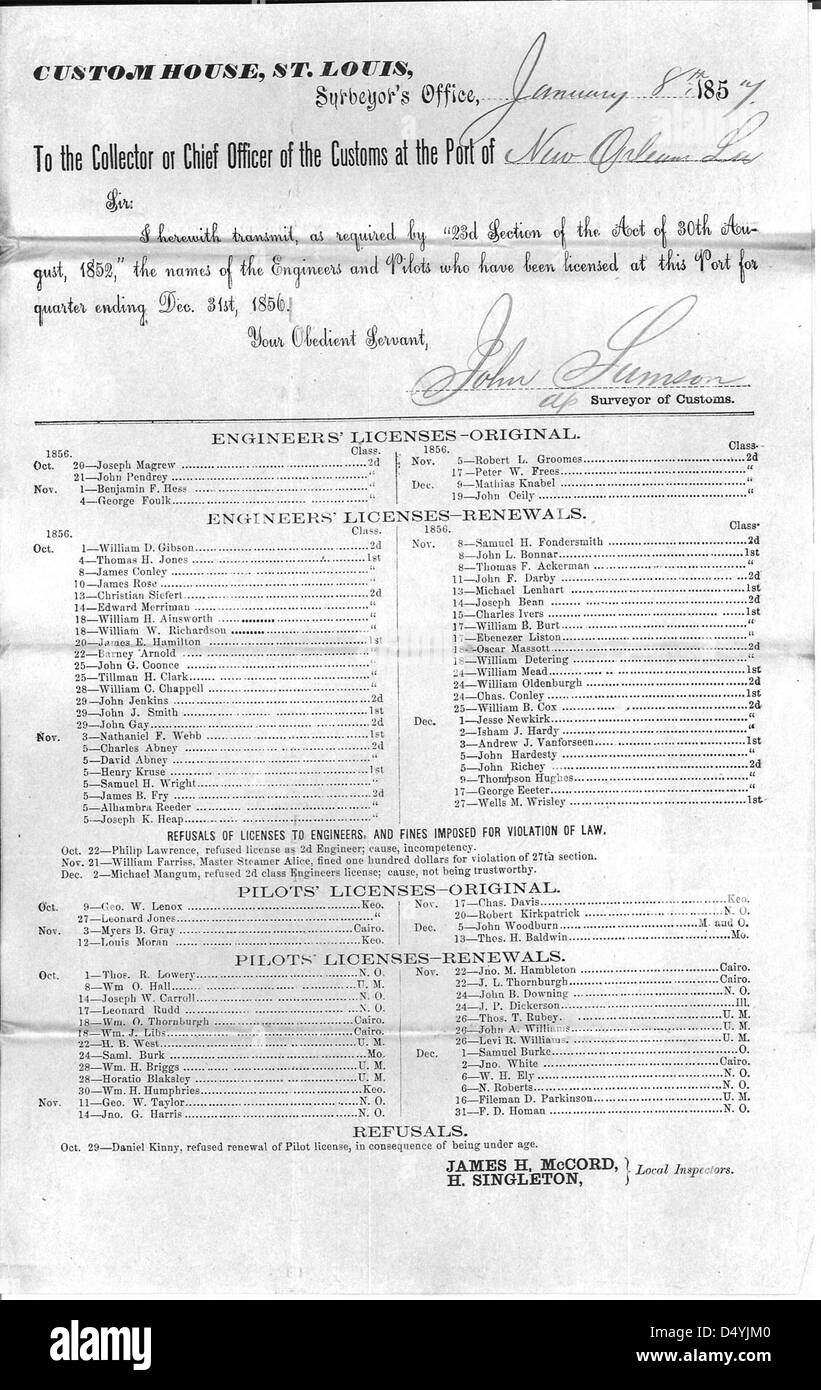 CUSTOM HOUSE, ST. LOUIS,
Surveyor's Office, January 8th 1857.
To the Collector or Chief Officer of the Customs at the Port of New Orleans La
Sir:
I herewith transmit, as required by "23d Section of the Act of 30th Au-
gust, 1852," the names of the Engineers and Pilots who have been licensed at this Port for
quarter ending Dec. 31st, 1856.
Your Obedient Servant,
John
Surveyor of Customs.
ENGINEERS' LICENSES-ORIGINAL.
1856. Class.
Oct. 20—Joseph Magrew 2d
21—John Pendrey "
Nov. 1—Benjamin F. Hess "
4—George Foulk "
1856. Class.
Nov. 5—Robert L. Groomes 2d
17—Peter W. Frees "
Dec. 9—Mathias Knabel "
19—John Ceily "
ENGINEERS' LICENSES-RENEWALS.
1856. Class.
Oct. 1—William D. Gibson 2d
4—Thomas H. Jones 1st
8—James Conley "
10—James Rose "
13—Christian Siefert 2d
14—Edward Merriman "
18—William H. Ainsworth "
18—William W. Richardson "
20—James E. Hamilton 1st
22—Barney Arnold "
25—John G. Coonce "
25—Tillman H. Clark "
28—William C. Chappell "
29—John Jenkins 2d
29—John J. Smith 1st
29—John Gay 2d
Nov. 3—Nathaniel F. Webb 1st
5—Charles Abney 2d
5—David Abney "
5—Henry Kruse 1st
5—Samuel H. Wright "
5—James B. Fry 2d
5—Alhambra Reeder "
5—Joseph K. Heap "
1856. Class.
Nov. 8—Samuel H. Fondersmith 2d
8—John L. Bonnar 1st
8—Thomas F. Ackerman "
11—John F. Darby 2d
13—Michael Lenhart 1st
14—Joseph Bean 2d
15—Charles Ivers 1st
17—William B. Burt "
17—Ebenezer Liston "
18—Oscar Massott 2d
18—William Detering "
24—William Mead 1st
24—William Oldenburgh 2d
24—Chas. Conley 1st
25—William B. Cox 2d
Dec. 1—Jesse Newkirk "
2—Isham J. Hardy "
3—Andrew J. Vanforseen 1st
5—John Hardesty "
5—John Richey 2d
9—Thompson Hughes "
17—George Eeeter "
27—Wells M. Wrisley 1st
REFUSALS OF LICENSES TO ENGINEERS, AND FINES IMPOSED FOR VIOLATION OF LAW.
Oct. 22—Philip Lawrence, refused license as 2d Engineer; cause, incompetency.
Nov. 21—William Farriss, Master Steamer Alice, fined one hundred dollars for violation of 27th section.
Dec. 2—Michael Mangum, refused 2d class Engineers license; cause, not being trustworthy.
PILOTS' LICENSES-ORIGINAL.
Oct. 9—Geo. W. Lenox Keo.
27—Leonard Jones "
Nov. 3—Myers B. Gray Cairo.
12—Louis Moran Keo.
Nov. 17—Chas. Davis Keo.
20—Robert Kirkpatrick N. O.
Dec. 5—John Woodburn M. and O.
13—Thos. H. Baldwin Mo.
PILOTS' LICENSES-RENEWALS.
Oct. 1—Thos. R. Lowery N. O.
8—Wm O. Hall U. M.
14—Joseph W. Carroll N. O.
17—Leonard Rudd N. O.
18—Wm. O. Thornburgh Cairo.
18—Wm. J. Libs Cairo.
22—H. B. West U. M.
24—Saml. Burk Mo.
28—Wm. H. Briggs U. M.
28—Horatio Blaksley U. M.
30—Wm. H. Humphries Keo.
Nov. 11—Geo. W. Taylor N. O.
14—Jno. G. Harris N. O.
Nov. 22—Jno. M. Hambleton Cairo.
22—J. L. Thornburgh Cairo.
24—John B. Downing N. O.
24—J. P. Dickerson Ill.
26—Thos. T. Rubey. U. M.
26—John A. Williams U. M.
26—Levi R. Williams. U. M.
Dec. 1—Samuel Burke O.
2—Jno. White Cairo.
6—W. H. Ely N. O.
6—N. Roberts N. O.
16—Fileman D. Parkinson U. M.
31—F. D. Homan N. O.
REFUSALS.
Oct. 29—Daniel Kinny, refused renewal of Pilot license, in consequence of being under age.
JAMES H. McCORD,
H. SINGLETON,
Local Inspectors.
alamy
Image ID: D4YJM0
www.alamy.com